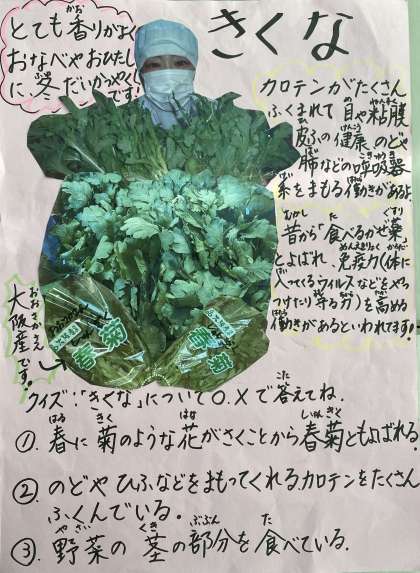 きくな
とても香りがよく
おなべやおひたし
に、冬だいかつやく
です!
カロテンがたくさん
ふくまれて目や粘膜
皮ふの健康、のどや
肺などの呼吸器
系をまもる働きがあるよ。
昔から「食べるかぜ薬」
とよばれ、免疫力(体に
入ってくるウィルスなどをやっ
つけたり守る力)を高め
る働きがあるといわれてます!
大阪産です!
春菊
春菊
クイズ:「きくな」について○.×で答えてね.
①.春に菊のような花がさくことから春菊ともよばれる.
②.のどやひふなどをまもってくれるカロテンをたくさん
ふくんでいる。
③.野菜の茎の部分を食べている.